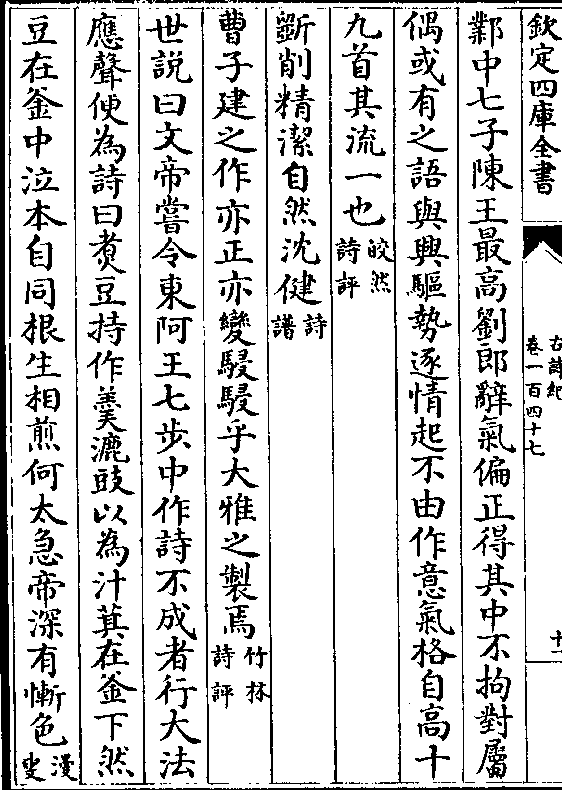 欽定四庫全書
古詩紀
卷一百四十七
十一
鄴中七子陳王最高劉郎辭氣偏正得其中不拘對屬
偶或有之語與興驅勢逐情起不由作意氣格自高十
九首其流一也皎然
詩評
斵削精潔自然沈健詩
譜
曹子建之作亦正亦變駸駸乎大雅之製焉竹林
詩評
世説曰文帝嘗令東阿王七歩中作詩不成者行大法
應聲便為詩曰煑豆持作羹漉豉以為汁萁在釜下然
豆在釜中泣本自同根生相煎何太急帝深有慚色漫
叟